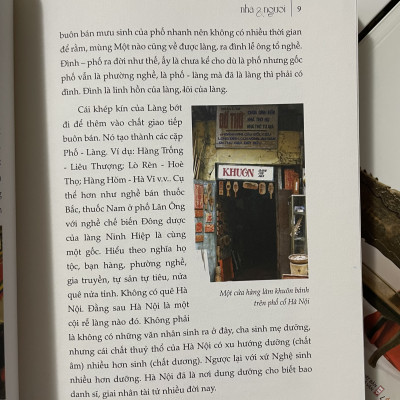 nhà & người 9
buôn bán mưu sinh của phố nhanh nên không có nhiều thời gian
để rằm, mùng Một nào cũng về được làng, ra đình lễ ông tổ nghề.
Đình – phố ra đời như thế, ấy là chưa kể cho dù là phố nhưng gốc
phố vẫn là phường nghề, là phố - làng mà đã là làng thì phải có
đình. Đình là linh hồn của làng, lõi của làng.
Cái khép kín của Làng bớt
đi để thêm vào chất giao tiếp
buôn bán. Nó tạo thành các cặp
Phố - Làng. Ví dụ: Hàng Trống
- Liêu Thượng; Lò Rèn - Hoè
Thọ; Hàng Hòm - Hà Vĩ v.v.. Cụ
thể hơn như nghề bán thuốc
Bắc, thuốc Nam ở phố Lãn Ông
với nghề chế biến Đông dược
của làng Ninh Hiệp là cùng
một gốc. Hiểu theo nghĩa họ
tộc, bạn hàng, phường nghề,
gia truyền, tự sản tự tiêu, nửa
quê nửa tỉnh. Không có quê Hà
Nội. Đằng sau Hà Nội là một
cội rễ làng nào đó. Không phải
là không có những văn nhân sinh ra ở đây, cha sinh mẹ dưỡng,
nhưng cái chất thuỷ thổ của Hà Nội có xu hướng dưỡng (chất
âm) nhiều hơn sinh (chất dương). Ngược lại với xứ Nghệ sinh
nhiều hơn dưỡng. Hà Nội đã là nơi dung dưỡng cho biết bao
danh sĩ, giai nhân tài tử nhiều đời nay.
KHUÔN
Một cửa hàng làm khuôn bánh
trên phố cổ Hà Nội